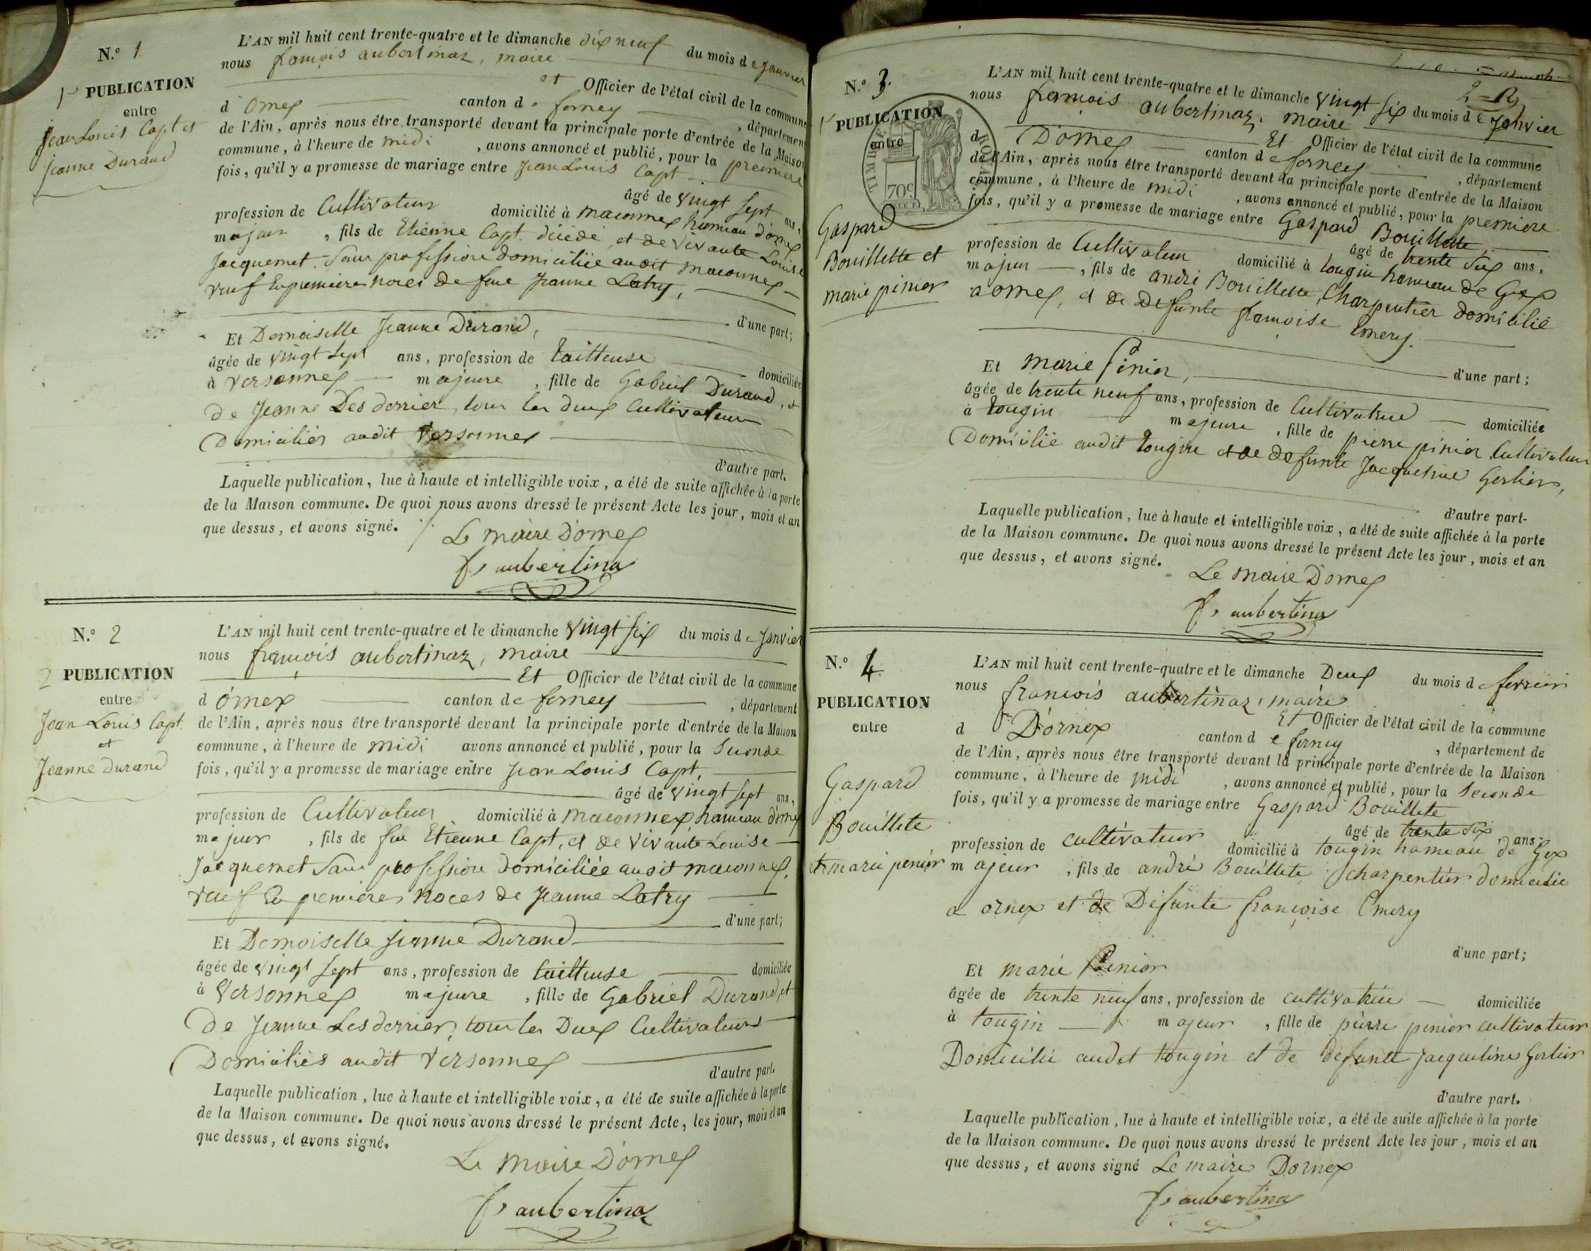 N.º 1
PUBLICATION
entre
Jean Louis Capt et
Jeanne Durand
L'AN mil huit cent trente-quatre et le dimanche dix neuf du mois de Janvier
nous françois aubertinaz, maire
et Officier de l'état civil de la commune
d'ornex canton de ferney, département
de l'Ain, après nous être transporté devant la principale porte d'entrée de la Maison
commune, à l'heure de midi, avons annoncé et publié, pour la premiere
fois, qu'il y a promesse de mariage entre Jean Louis Capt
âgé de vingt sept ans,
profession de Cultivateur domicilié à maconnex hameau d'ornex
majeur, fils de Etienne Capt décédé et de vivante Louise
Jacquemet. Sans profession domiciliée audit maconnex
veuf En premieres noces de feue Jeanne Latry,
d'une part;
Et Demoiselle Jeanne Durand,
âgée de vingt sept ans, profession de tailleuse domiciliée
à versonnex majeure, fille de Gabriel Durand, et
de Jeanne Desderrier, tous les deux Cultivateurs
Domiciliés audit versonnex
d'autre part.
Laquelle publication, lue à haute et intelligible voix, a été de suite affichée à la porte
de la Maison commune. De quoi nous avons dressé le présent Acte les jour, mois et an
que dessus, et avons signé.
Le maire D'ornex
fs aubertinaz
N.º 2
2 PUBLICATION
entre
Jean Louis Capt
et
Jeanne Durand
L'AN mil huit cent trente-quatre et le dimanche vingt six du mois de Janvier
nous françois aubertinaz, maire
Et Officier de l'état civil de la commune
d'ornex canton de ferney, département
de l'Ain, après nous être transporté devant la principale porte d'entrée de la Maison
commune, à l'heure de midi avons annoncé et publié, pour la Seconde
fois, qu'il y a promesse de mariage entre Jean Louis Capt,
âgé de vingt sept ans,
profession de Cultivateur domicilié à maconnex hameau d'ornex
majeur, fils de feu Etienne Capt, et de vivante Louise
Jacquemet Sans profession domiciliée audit maconnex,
veuf En premieres noces de Jeanne Latry
d'une part;
Et Demoiselle Jeanne Durand
âgée de vingt sept ans, profession de tailleuse domiciliée
à versonnex majeure, fille de Gabriel Durand et
de Jeanne Lesderrier, tous les Deux Cultivateurs
Domiciliés audit versonnex
d'autre part.
Laquelle publication, lue à haute et intelligible voix, a été de suite affichée à la porte
de la Maison commune. De quoi nous avons dressé le présent Acte, les jour, mois et an
que dessus, et avons signé.
Le maire D'ornex
fs aubertinaz
N.º 3.
PUBLICATION
entre
Gaspard
Bouillette et
marie pinior
TIMBRE ROYAL
70c
L'AN mil huit cent trente-quatre et le dimanche vingt six du mois de Janvier
nous françois aubertinaz, maire
Et Officier de l'état civil de la commune
d D'ornex canton de ferney, département
de l'Ain, après nous être transporté devant la principale porte d'entrée de la Maison
commune, à l'heure de midi, avons annoncé et publié, pour la premiere
fois, qu'il y a promesse de mariage entre Gaspard Bouillette
âgé de trente six ans,
profession de Cultivateur domicilié à tougin hameau de Gex
majeur, fils de andré Bouillette, Charpentier domicilié
a ornex, et de defunte françoise Emery.
d'une part;
Et marie Pinior,
âgée de trente neuf ans, profession de Cultivatrice domiciliée
à tougin majeure, fille de pierre pinior Cultivateur
Domicilié audit tougin et de defunte Jacqueline Gerlier,
d'autre part.
Laquelle publication, lue à haute et intelligible voix, a été de suite affichée à la porte
de la Maison commune. De quoi nous avons dressé le présent Acte les jour, mois et an
que dessus, et avons signé.
Le maire D'ornex
fs aubertinaz
N.º 4
PUBLICATION
entre
Gaspard
Bouillete
et marie penior
L'AN mil huit cent trente-quatre et le dimanche Deux du mois de fevrier
nous francois aubertinaz, maire
Et Officier de l'état civil de la commune
d D'ornex canton de ferney, département de
de l'Ain, après nous être transporté devant la principale porte d'entrée de la Maison
commune, à l'heure de midi, avons annoncé et publié, pour la Seconde
fois, qu'il y a promesse de mariage entre Gaspard Bouillete
âgé de trente six ans
profession de cultivateur domicilié à tougin hameau de Gex
majeur, fils de andré Bouillete charpentier domicilie
a ornex et de Defunte françoise Emery
d'une part;
Et marie Penior
âgée de trente neuf ans, profession de cultivatrice domiciliée
à tougin majeur, fille de pierre penior cultivateur
Domicilié audit tougin et de defunte Jacqueline Gerlier
d'autre part.
Laquelle publication, lue à haute et intelligible voix, a été de suite affichée à la porte
de la Maison commune. De quoi nous avons dressé le présent Acte les jour, mois et an
que dessus, et avons signé Le maire Dornex
fs aubertinaz